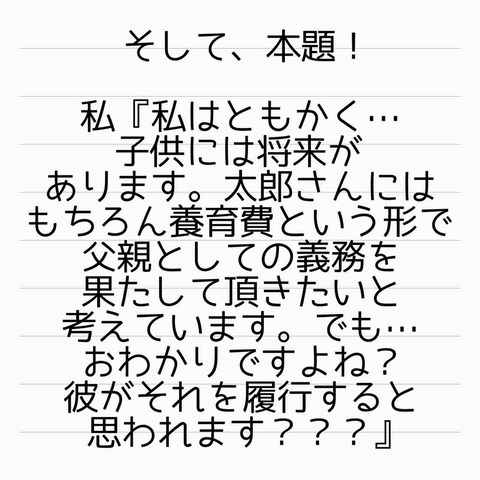 そして、本題！
私『私はともかく…
子供には将来が
あります。太郎さんには
もちろん養育費という形で
父親としての義務を
果たして頂きたいと
考えています。でも…
おわかりですよね？
彼がそれを履行すると
思われます？？？』